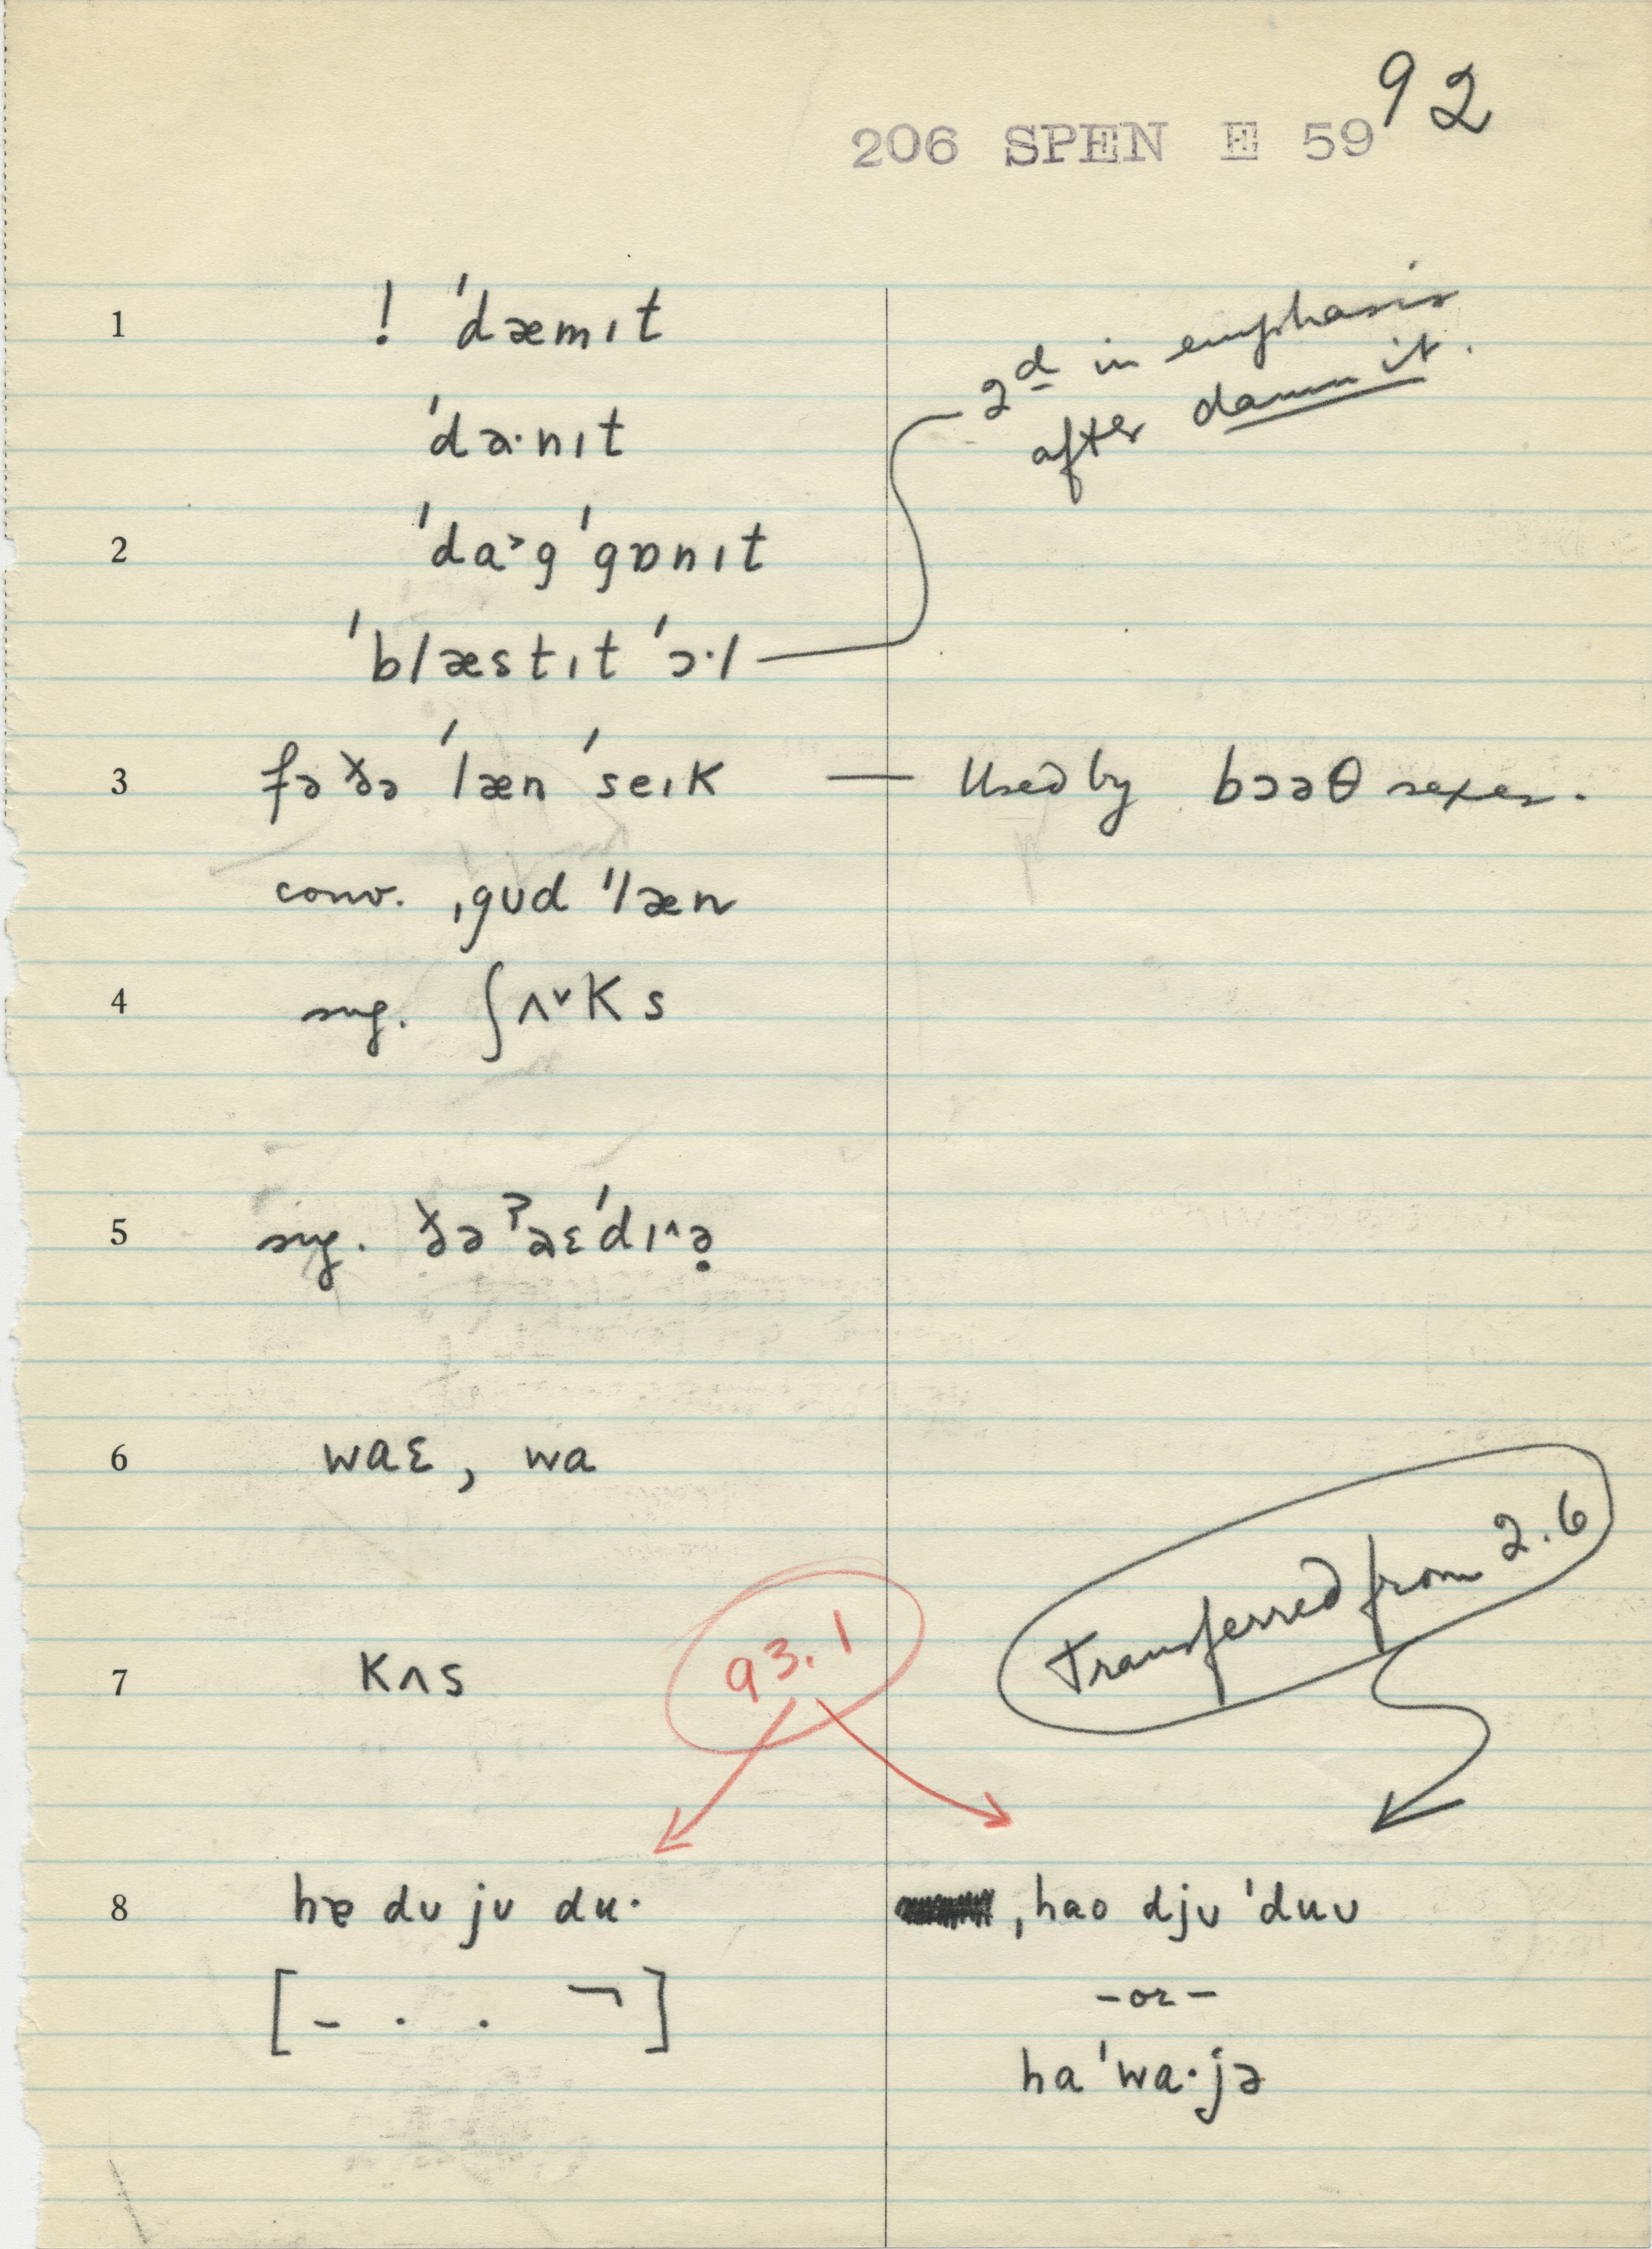 92
206 SPEN E 59
1 ! ˈdæmɪt
ˈdɑ·nɪt
2 ˈda˃g ˈgɒnɪt
ˈblæstɪt ˈɔ·l
2d in emphasis
after damn it.
3 fə ðə ˈlæn ˈseɪk — Used by bɔəθ sexes.
conv. ˌgʊd ˈlæn
4 sug. ʃʌ˅ks
5 sug. ðə ˀaɛˈdɪ˄ə̣
6 waɛ, wa
7 kʌs
93.1
Transferred from 2.6
8 hɐ dʊ jʊ du·
[– . . ¬]
ˌhaʊ djʊ ˈduʊ
– or –
haˈwa·jə